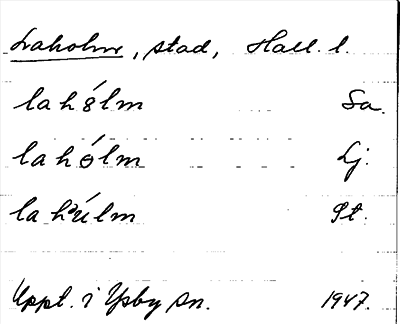 Laholm, stad, Hall. l.
lahȣ́lm Sa.
lahólm Lj.
lahúlm St.
Uppt. i Ysby sn. 1947.